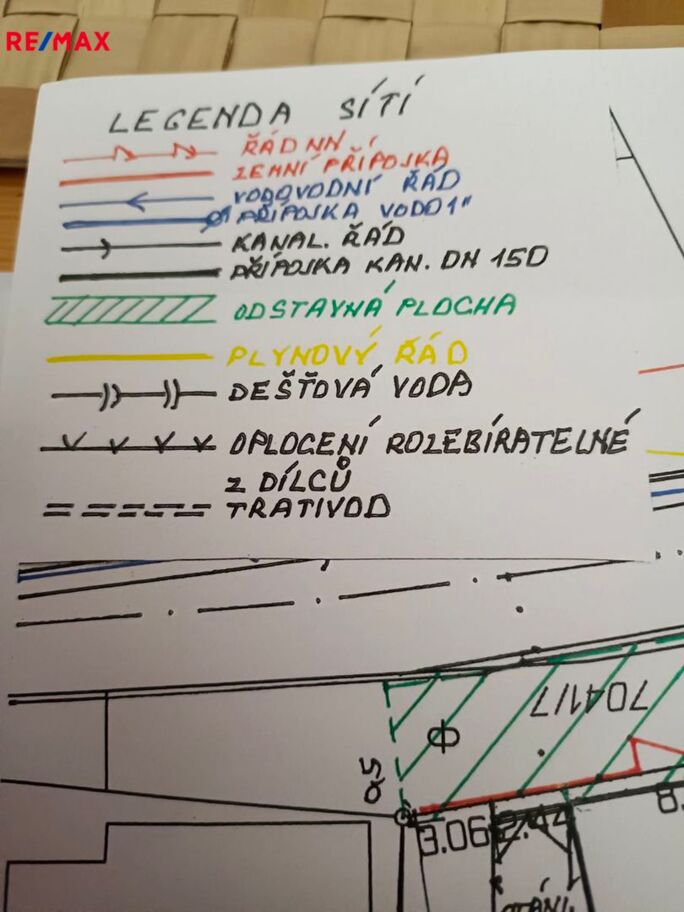 RE/MAX
LEGENDA SÍTÍ
ŘÁD NN
ZEMNÍ PŘÍPOJKA
VODOVODNÍ ŘÁD
PŘÍPOJKA VODO 1"
KANAL. ŘÁD
PŘÍPOJKA KAN. DN 150
ODSTAVNÁ PLOCHA
PLYNOVÝ ŘÁD
DEŠŤOVÁ VODA
OPLOCENÍ ROZEBÍRATELNÉ
Z DÍLCŮ
TRATIVOD
7041/7
3.06
2.44
8.